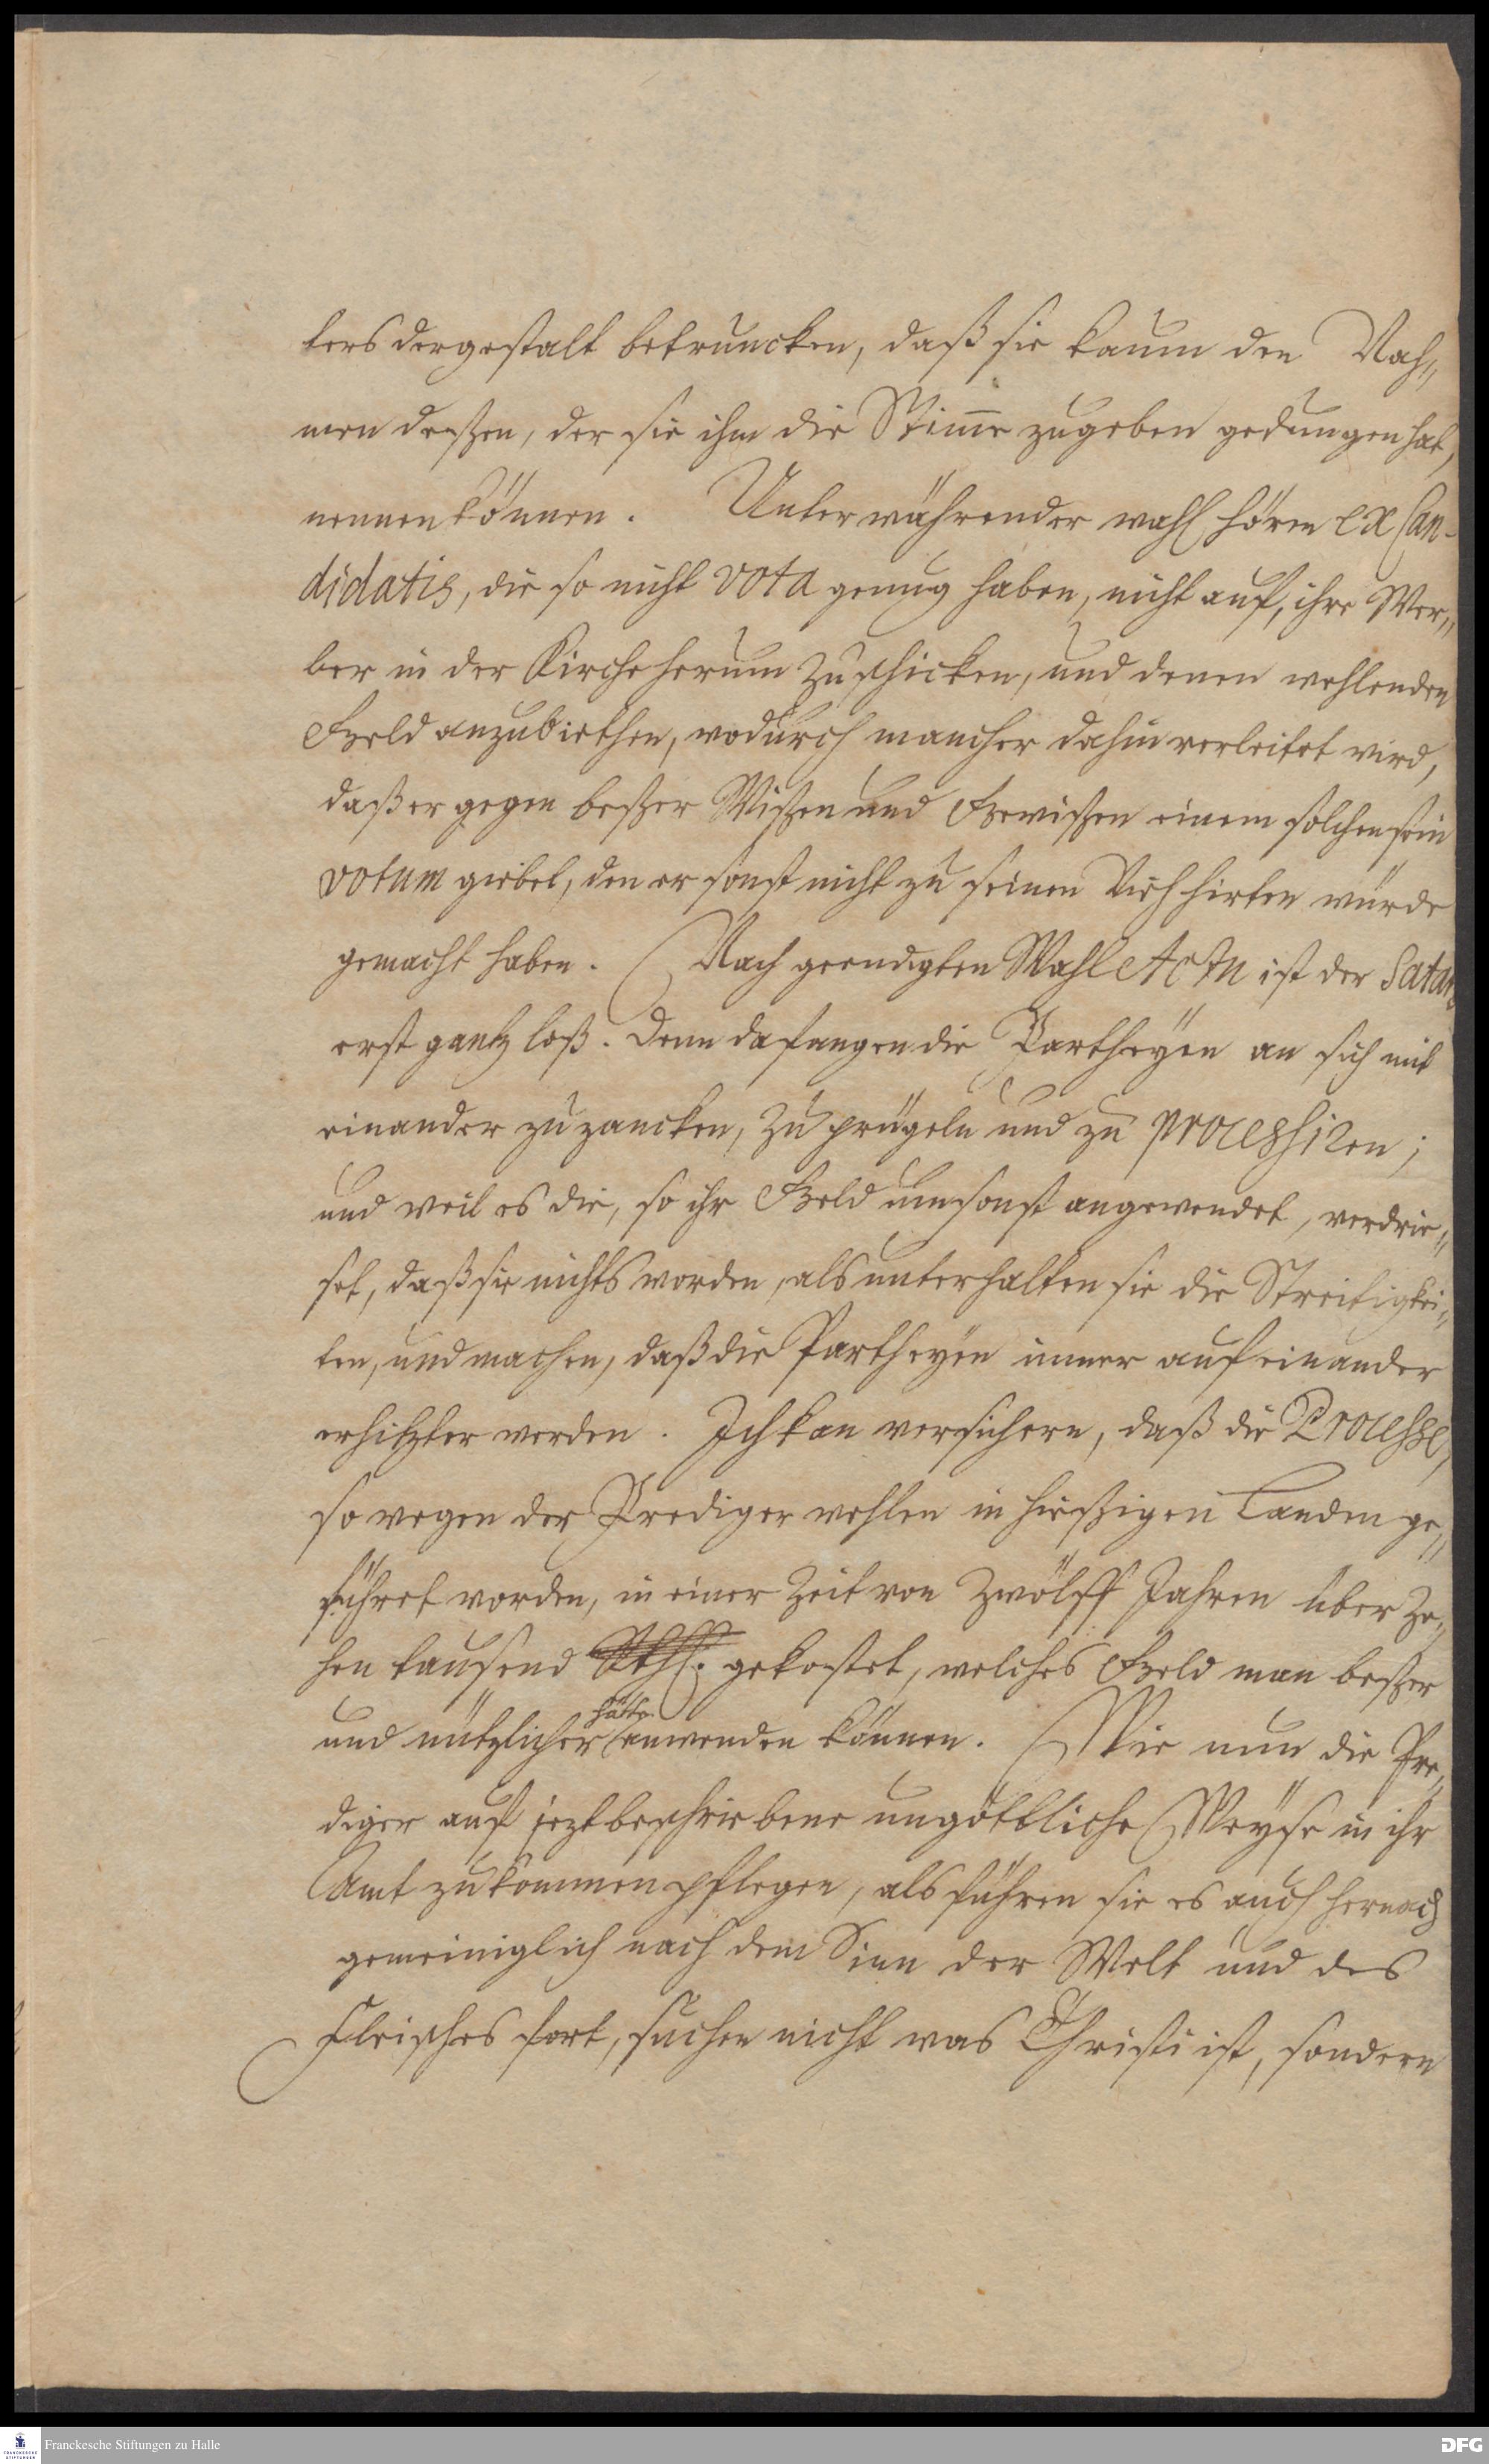 ters dergestalt betruncken, daß sie kaum den Nah„
men deßen, der sie ihm die Stim̄e zugeben gedungen hat,
nennen können. Unter währender wahl hören ex Can-
didatis, die so nicht vota genug haben, nicht auf, ihre Wer„
ber in der Kirche herum zu schicken, und denen wehlenden
Geld anzubiethen, wodurch mancher dahin verleitet wird,
daß er gegen beßer Wißen und Gewißen einem solchen sein
votum giebet, den er sonst nicht zu seinen Viehhirten würde
gemacht haben. Nach geendigten Wahl Actu ist der Satan
erst gantz loß. Denn da fangen die Partheyen an sich mit
einander zu zancken, zu prügeln und zu processiren;
und weil es die, so ihr Geld umsonst angewendet, verdrie„
set, daß sie nichts worden, als unterhalten sie die Streitigkei„
ten, und machen, daß die Partheyen immer auf einander
erhitzter werden. Ich kan versichern, daß die Processe,
so wegen der Prediger wehlen in hießigen Landen ge„
führet worden, in einer Zeit von Zwölff Jahren über Ze„
hen tausend Rthl. gekostet, welches Geld man beßer
hätte
und nützlicher anwenden können. Wie nun die Pre„
diger auf jezt beschriebene ungöttliche Weyse in ihr
Amt zu kommen pflegen, als führen sie es auch hernach
gemeiniglich nach dem Sinn der Welt und des
Fleisches fort, suchen nicht was Christi ist, sondern
Franckesche Stiftungen zu Halle
FRANCKESCHE STIFTUNGEN
DFG